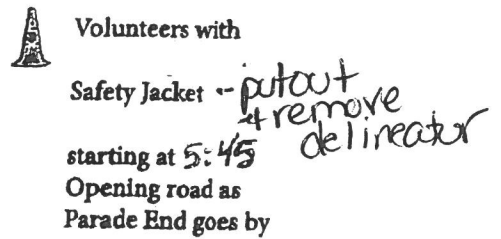 Volunteers with
Safety Jacket -- putout
& remove
delineator
starting at 5:45
Opening road as
Parade End goes by